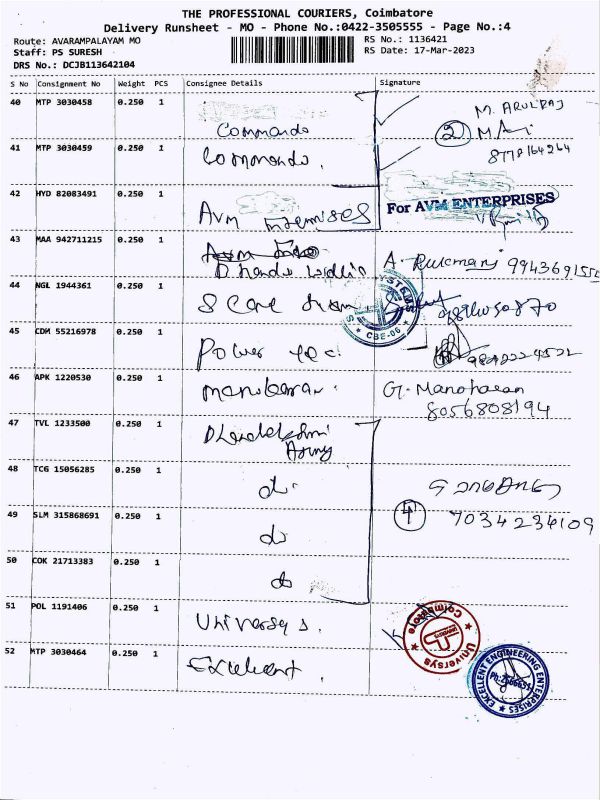 THE PROFESSIONAL COURIERS, Coimbatore
Delivery Runsheet - MO - Phone No.:0422-3505555 - Page No.:4
Route: AVARAMPALAYAM MO
RS No.: 1136421
Staff: PS SURESH
RS Date: 17-Mar-2023
DRS No.: DCJB113642104
S No Consignment No Weight PCS Consignee Details Signature
40 MTP 3030458 0.250 1 Commando M. ARULRAJ
2
41 MTP 3030459 0.250 1 Commando. 8778164264
42 HYD 82083491 0.250 1 Avm For AVM ENTERPRISES
43 MAA 942711215 0.250 1 A. Rukmani 9943691550
44 NGL 1944361 0.250 1 S Care
SYSTEMS
CBE-06
45 CDM 55216978 0.250 1 Power
46 APK 1220530 0.250 1 Manoharan. G. Manoharan
8056808194
47 TVL 1233500 0.250 1
48 TCG 15056285 0.250 1 do
4
49 SLM 315868691 0.250 1 do 7034234109
50 COK 21713383 0.250 1 do
51 POL 1191406 0.250 1 Universys.
Universys Coimbatore
52 MTP 3030464 0.250 1 Excellent.
EXCELLENT ENGINEERING ENTERPRISES
Ph:2566655